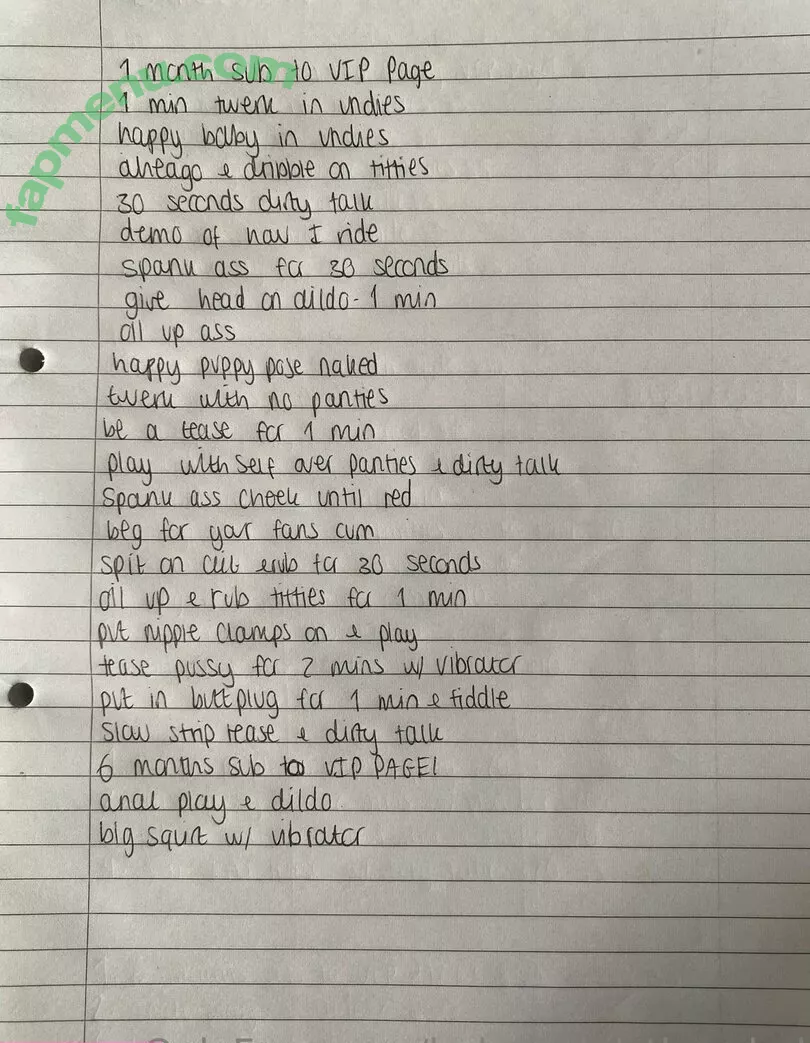 fapmenu.com
1 month sub to VIP Page
1 min twerk in undies
happy baby in undies
aheago & dribble on titties
30 seconds dirty talk
demo of how I ride
spank ass for 30 seconds
give head on dildo - 1 min
oil up ass
happy puppy pose naked
twerk with no panties
be a tease for 1 min
play with self over panties & dirty talk
spank ass cheek until red
beg for your fans cum
spit on clit & rub for 30 seconds
oil up & rub titties for 1 min
put nipple clamps on & play
tease pussy for 2 mins w/ vibrator
put in buttplug for 1 min & fiddle
slow strip tease & dirty talk
6 months sub to VIP PAGE!
anal play & dildo
big squirt w/ vibrator